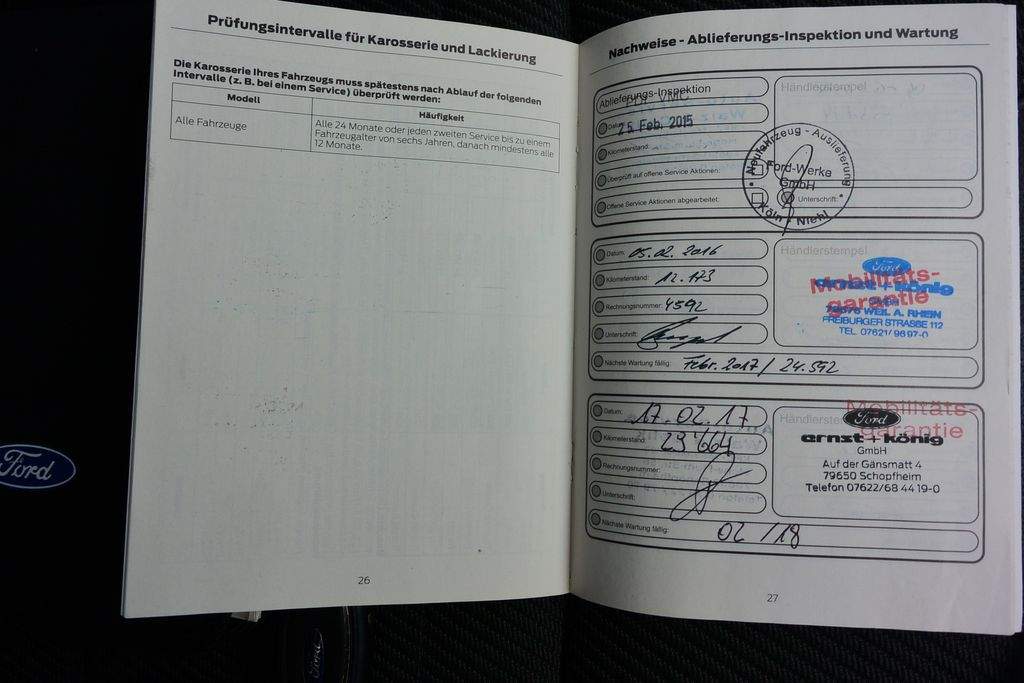 Prüfungsintervalle für Karosserie und Lackierung
Die Karosserie Ihres Fahrzeugs muss spätestens nach Ablauf der folgenden
Intervalle (z. B. bei einem Service) überprüft werden:
Modell
Häufigkeit
Alle Fahrzeuge
Alle 24 Monate oder jeden zweiten Service bis zu einem
Fahrzeugalter von sechs Jahren, danach mindestens alle
12 Monate.
26
Nachweise - Ablieferungs-Inspektion und Wartung
Ablieferungs-Inspektion
PDI VMC
Datum:
25. Feb. 2015
Kilometerstand:
Überprüft auf offene Service Aktionen:
Offene Service Aktionen abgearbeitet:
Händlerstempel
Neufahrzeug - Auslieferung
Ford-Werke
GmbH
Köln - Niehl
Unterschrift:
Datum: 05.02.2016
Kilometerstand: 12.173
Rechnungsnummer: 4592
Unterschrift:
Nächste Wartung fällig: Febr. 2017 / 24.592
Händlerstempel
Ford
Mobilitäts-
garantie
ernst + könig
79576 WEIL A. RHEIN
FREIBURGER STRASSE 112
TEL. 07621/9697-0
Datum: 17.02.17
Kilometerstand: 29 664
Rechnungsnummer:
Unterschrift:
Nächste Wartung fällig: 02/18
Mobilitäts-
garantie
Ford
ernst + könig
GmbH
Auf der Gänsmatt 4
79650 Schopfheim
Telefon 07622/68 44 19-0
27
Ford
Ford